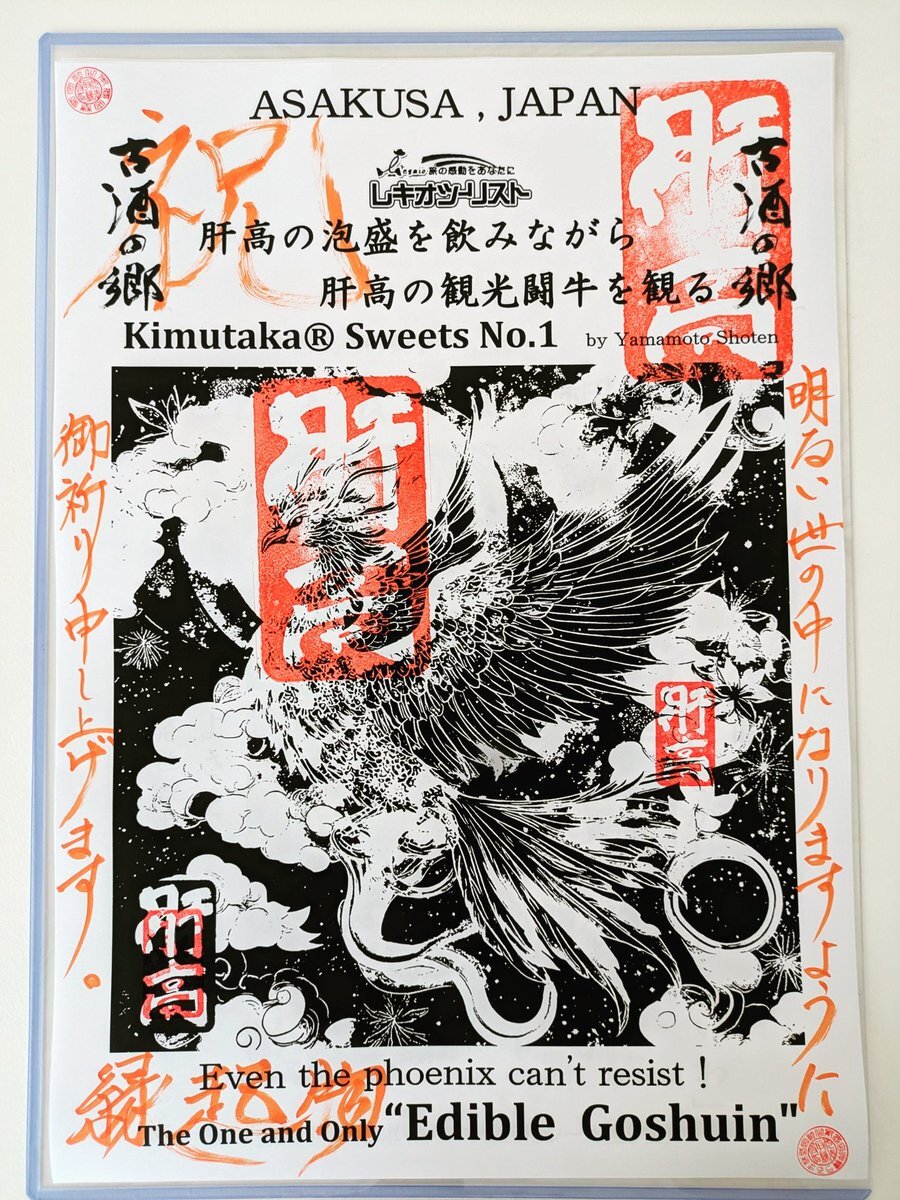 ASAKUSA , JAPAN
祝
古酒の郷
旅の感動をあなたに
レキオツーリスト
肝高の泡盛を飲みながら
肝高の観光闘牛を観る
古酒の郷
肝高
Kimutaka® Sweets No.1 by Yamamoto Shoten
明るい世の中になりますように
御祈り申し上げます。
肝高
肝高
肝高
縁起物
Even the phoenix can't resist !
The One and Only “Edible Goshuin"